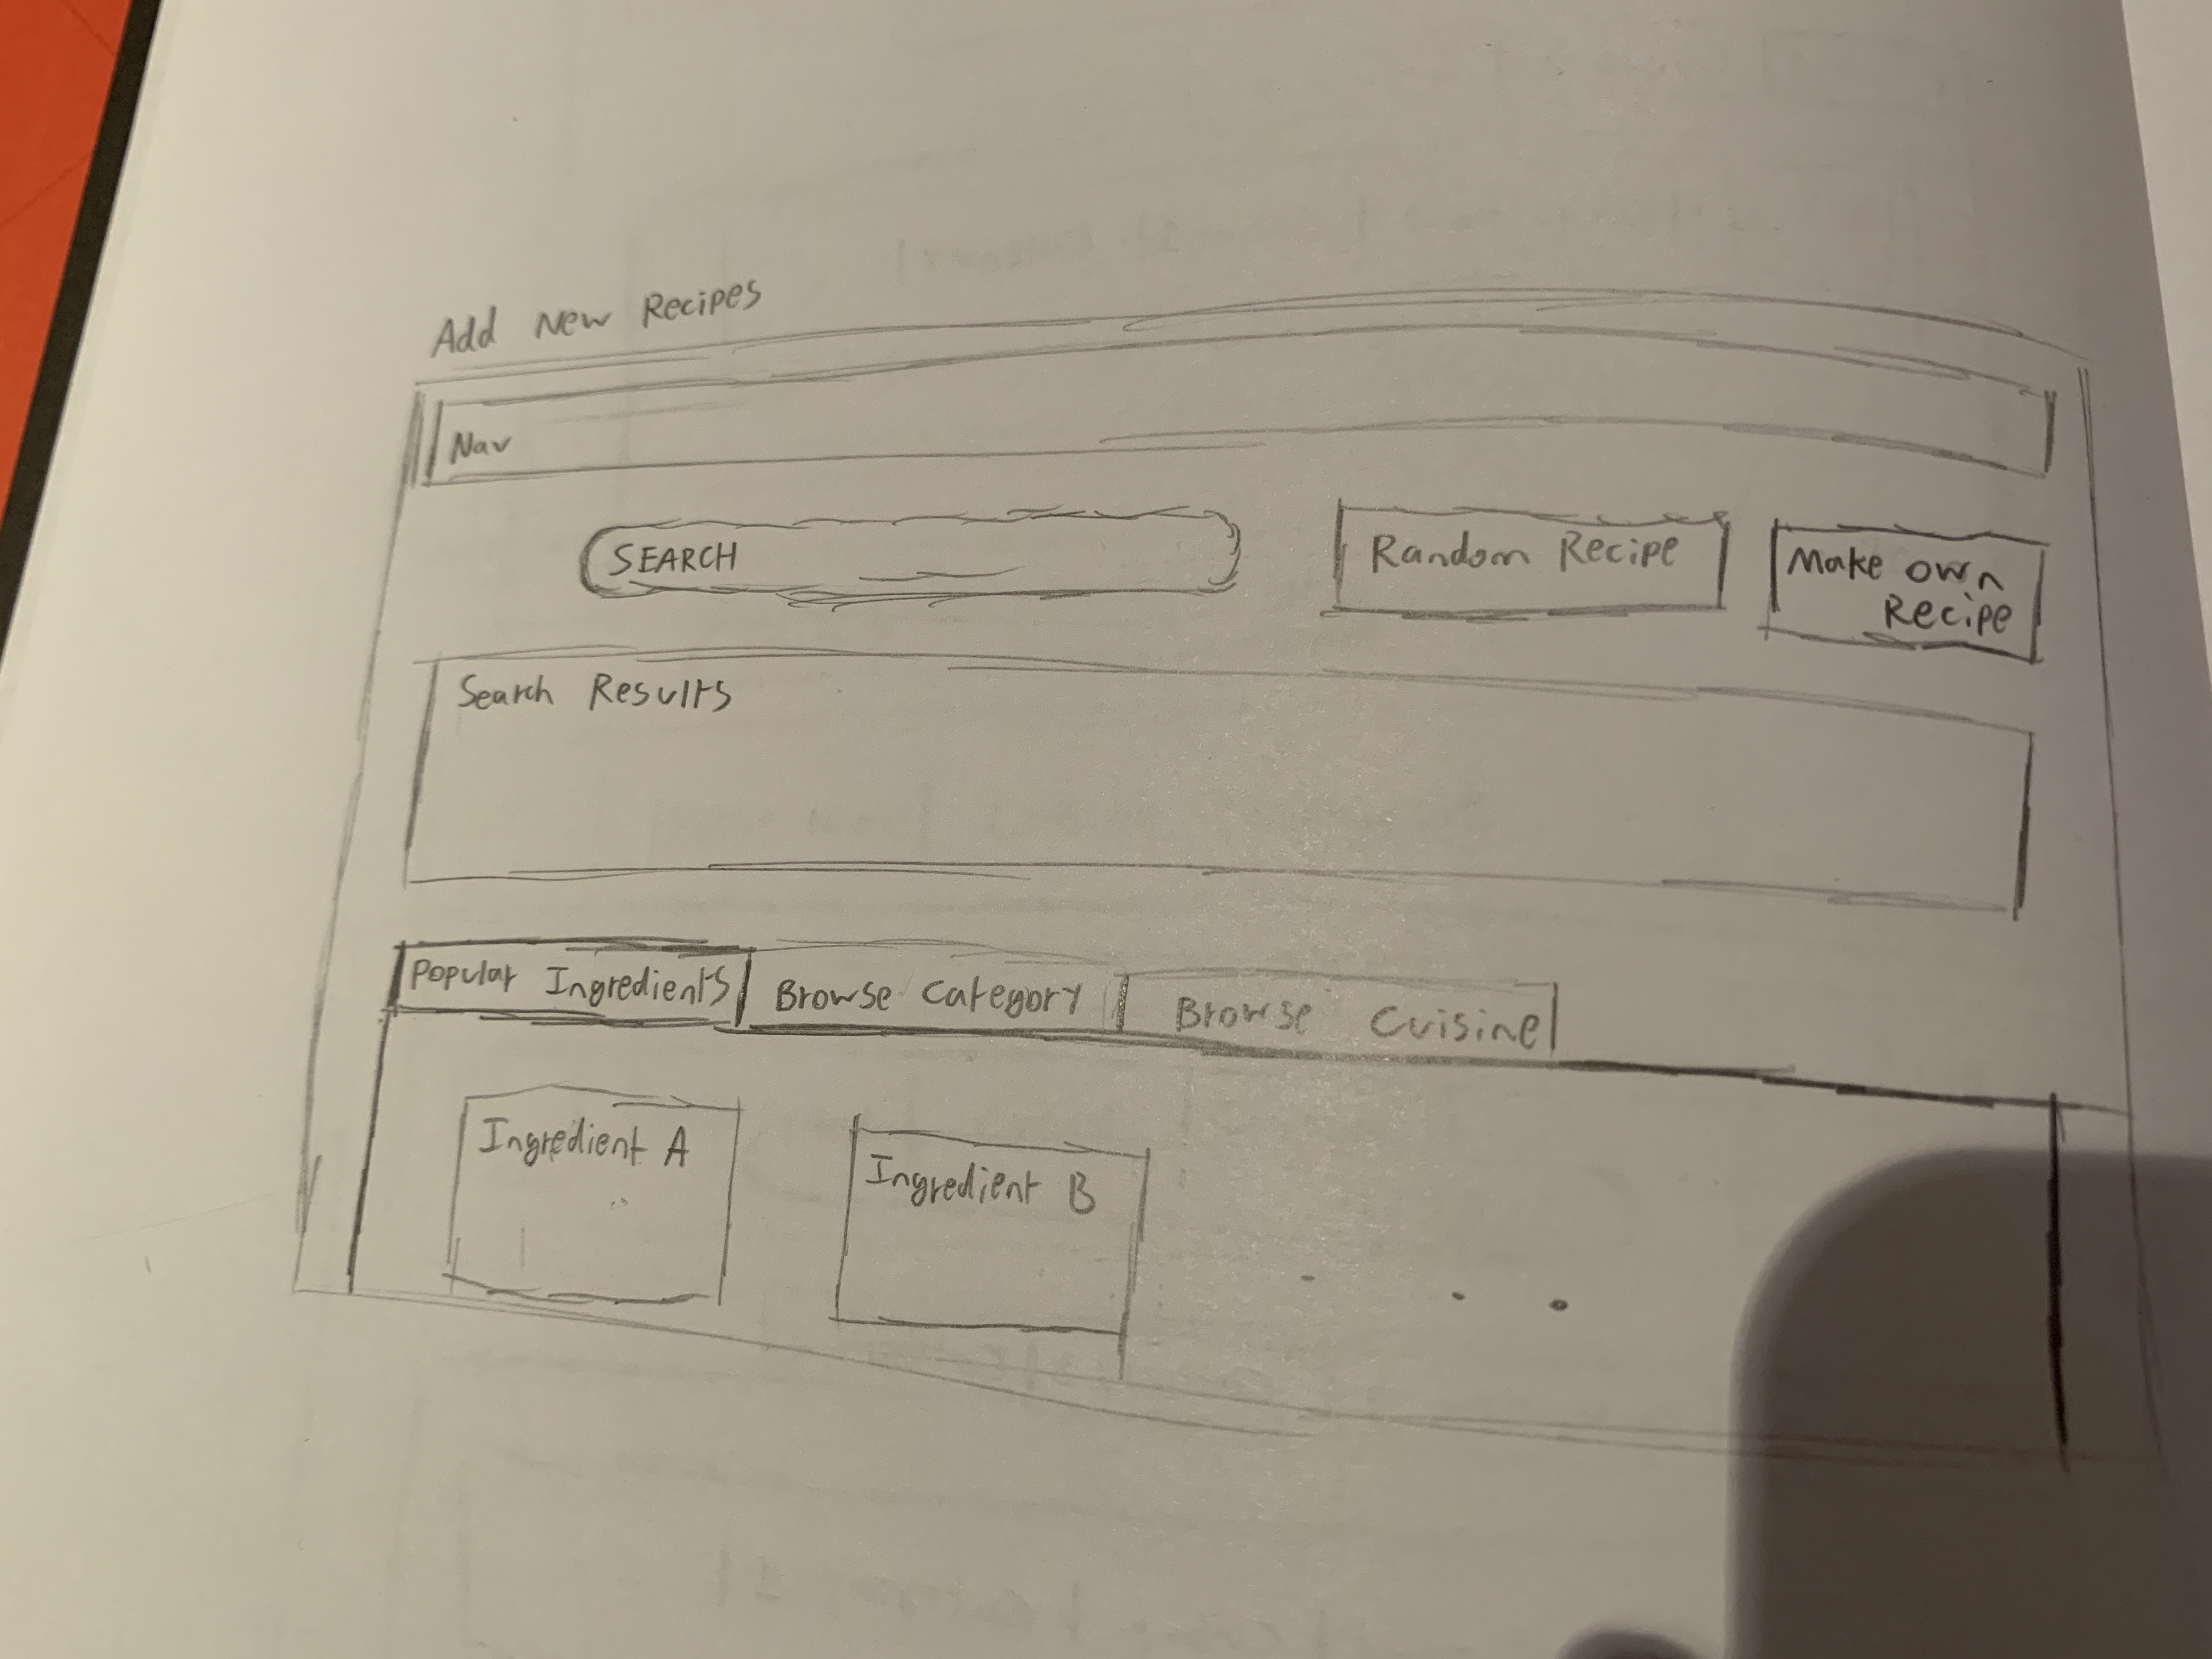 Add New Recipes
Nav
SEARCH
Random Recipe
Make own
Recipe
Search Results
Popular Ingredients
Browse Category
Browse Cuisine
Ingredient A
Ingredient B
. . .